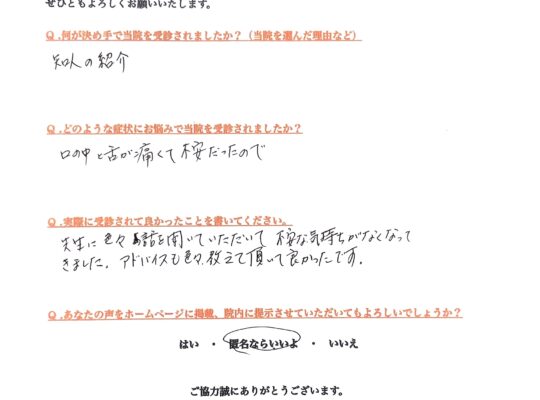 ぜひともよろしくお願いいたします。
Q.何が決め手で当院を受診されましたか？（当院を選んだ理由など）
知人の紹介
Q.どのような症状にお悩みで当院を受診されましたか？
口の中と舌が痛くて不安だったので
Q.実際に受診されて良かったことを書いてください。
先生に色々話を聞いていただいて不安な気持ちがなくなって
きました。アドバイスも色々教えて頂いて良かったです。
Q.あなたの声をホームページに掲載、院内に提示させていただいてもよろしいでしょうか？
はい ・ 匿名ならいいよ ・ いいえ
ご協力誠にありがとうございます。